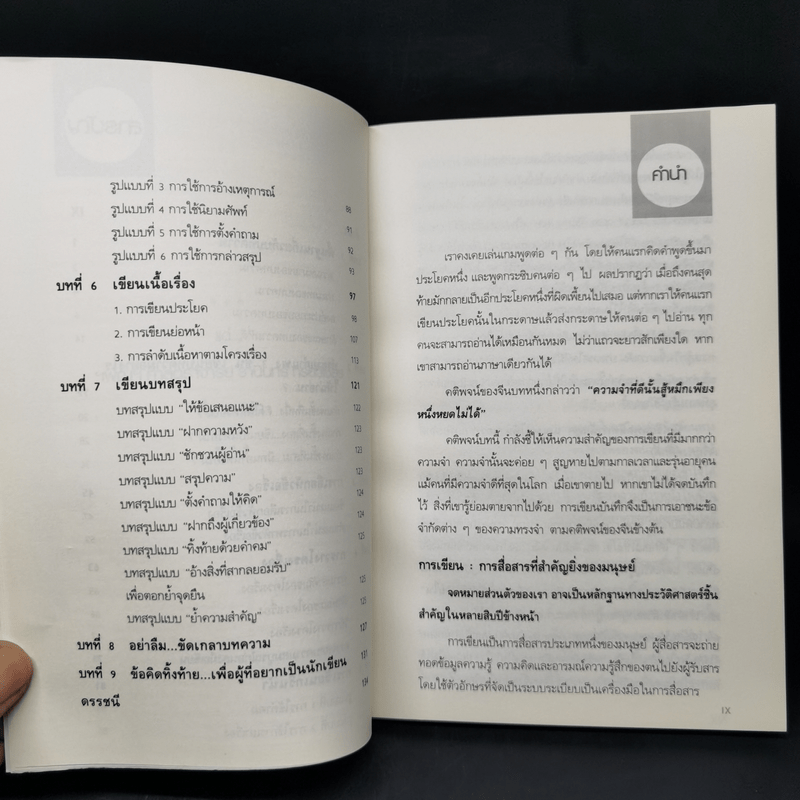 รูปแบบที่ 3 การใช้การอ้างเหตุการณ์
รูปแบบที่ 4 การใช้นิยามศัพท์ 88
รูปแบบที่ 5 การใช้การตั้งคำถาม 91
รูปแบบที่ 6 การใช้การกล่าวสรุป 92
93
บทที่ 6 เขียนเนื้อเรื่อง 97
1. การเขียนประโยค 98
2. การเขียนย่อหน้า 107
3. การลำดับเนื้อหาตามโครงเรื่อง 113
บทที่ 7 เขียนบทสรุป 121
บทสรุปแบบ "ให้ข้อเสนอแนะ" 122
บทสรุปแบบ "ฝากความหวัง" 122
บทสรุปแบบ "ชักชวนผู้อ่าน" 123
บทสรุปแบบ "สรุปความ" 123
บทสรุปแบบ "ตั้งคำถามให้คิด" 124
บทสรุปแบบ "ฝากถึงผู้เกี่ยวข้อง" 124
บทสรุปแบบ "ทิ้งท้ายด้วยคำคม" 124
บทสรุปแบบ "อ้างสิ่งที่สากลยอมรับ"
เพื่อตอกย้ำจุดยืน 125
บทสรุปแบบ "ย้ำความสำคัญ" 125
บทที่ 8 อย่าลืม...ขัดเกลาบทความ 127
บทที่ 9 ข้อคิดทิ้งท้าย...เพื่อผู้ที่อยากเป็นนักเขียน 131
ดรรชนี 134
คำนำ
เราคงเคยเล่นเกมพูดต่อ ๆ กัน โดยให้คนแรกคิดคำพูดขึ้นมา
ประโยคหนึ่ง และพูดกระซิบคนต่อ ๆ ไป ผลปรากฏว่า เมื่อถึงคนสุด
ท้ายมักกลายเป็นอีกประโยคหนึ่งที่ผิดเพี้ยนไปเสมอ แต่หากเราให้คนแรก
เขียนประโยคนั้นในกระดาษแล้วส่งกระดาษให้คนต่อ ๆ ไปอ่าน ทุก
คนจะสามารถอ่านได้เหมือนกันหมด ไม่ว่าแถวจะยาวสักเพียงใด หาก
เขาสามารถอ่านภาษาเดียวกันได้
คติพจน์ของจีนบทหนึ่งกล่าวว่า "ความจำที่ดีนั้นสู้หมึกเพียง
หนึ่งหยดไม่ได้"
คติพจน์บทนี้ กำลังชี้ให้เห็นความสำคัญของการเขียนที่มีมากกว่า
ความจำ ความจำนั้นจะค่อย ๆ สูญหายไปตามกาลเวลาและรุ่นอายุคน
แม้คนที่มีความจำดีที่สุดในโลก เมื่อเขาตายไป หากเขาไม่ได้จดบันทึก
ไว้ สิ่งที่เขารู้ย่อมตายจากไปด้วย การเขียนบันทึกจึงเป็นการเอาชนะข้อ
จำกัดต่าง ๆ ของความทรงจำ ตามคติพจน์ของจีนข้างต้น
การเขียน : การสื่อสารที่สำคัญยิ่งของมนุษย์
จดหมายส่วนตัวของเรา อาจเป็นหลักฐานทางประวัติศาสตร์ชิ้น
สำคัญในหลายสิบปีข้างหน้า
การเขียนเป็นการสื่อสารประเภทหนึ่งของมนุษย์ ผู้สื่อสารจะถ่าย
ทอดข้อมูลความรู้ ความคิดและอารมณ์ความรู้สึกของตนไปยังผู้รับสาร
โดยใช้ตัวอักษรที่จัดเป็นระบบระเบียบเป็นเครื่องมือในการสื่อสาร
IX